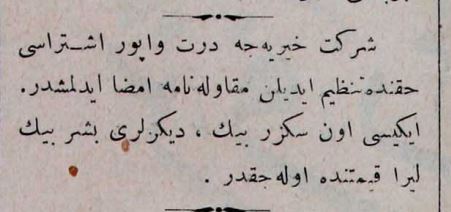 شركت خيريه‌جه درت واپور اشتراسى
حقنده تنظيم ايديلن مقاوله‌نامه امضا ايدلمشدر.
ايكيسى اون سكزر بيك ، ديكرلرى بشر بيك
ليرا قيمتنده اوله‌جقدر .